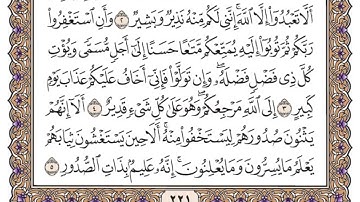 أَلَّا تَعْبُدُوٓا۟ إِلَّا ٱللَّهَ ۚ إِنَّنِى لَكُم مِّنْهُ نَذِيرٌ وَبَشِيرٌ ٢ وَأَنِ ٱسْتَغْفِرُوا۟
رَبَّكُمْ ثُمَّ تُوبُوٓا۟ إِلَيْهِ يُمَتِّعْكُم مَّتَـٰعًا حَسَنًا إِلَىٰٓ أَجَلٍ مُّسَمًّى وَيُؤْتِ
كُلَّ ذِى فَضْلٍ فَضْلَهُۥ ۖ وَإِن تَوَلَّوْا۟ فَإِنِّىٓ أَخَافُ عَلَيْكُمْ عَذَابَ يَوْمٍ
كَبِيرٍ ٣ إِلَى ٱللَّهِ مَرْجِعُكُمْ ۖ وَهُوَ عَلَىٰ كُلِّ شَىْءٍ قَدِيرٌ ٤ أَلَآ إِنَّهُمْ
يَثْنُونَ صُدُورَهُمْ لِيَسْتَخْفُوا۟ مِنْهُ ۚ أَلَا حِينَ يَسْتَغْشُونَ ثِيَابَهُمْ
يَعْلَمُ مَا يُسِرُّونَ وَمَا يُعْلِنُونَ ۚ إِنَّهُۥ عَلِيمٌۢ بِذَاتِ ٱلصُّدُورِ ٥
٢٢١